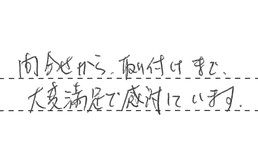 問合せから、取り付けまで、
大変満足で感謝しています。